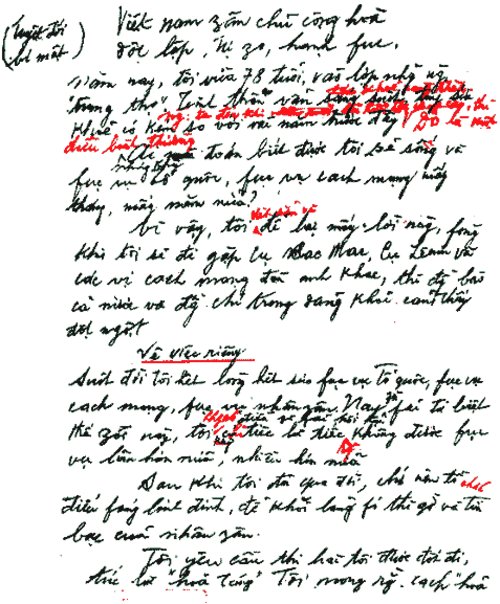 (tuyệt đối bí mật)
Việt nam zân chủ cộng hoà
độc lập, tự zo, hạnh fúc.
Năm nay, tôi vừa 78 tuổi, vào lớp những người
"trung thọ". Tinh thần vẫn
khoẻ có kém so với vài năm trước đây. Đó là một
điều bình thường.
toán biết được tôi sẽ sống và
fục vụ tổ quốc, fục vụ cách mạng mấy
tháng, mấy năm nữa?
Vì vậy, tôi để lại mấy lời này, fòng
khi tôi sẽ đi gặp cụ Các Mác, Cụ Lênin và
các vị cách mạng đàn anh khác, thì đồng bào
cả nước và đồng chí trong đảng khỏi cảm thấy
đột ngột.
Về việc riêng.
Suốt đời tôi hết lòng hết sức fục vụ Tổ quốc, fục vụ
cách mạng, fục vụ nhân zân. Nay zù fải từ biệt
thế zới này, tôi tiếc là tiếc không được fục
vụ lâu hơn nữa, nhiều hơn nữa
Sau khi tôi đã qua đời, chớ nên tổ chức
điếu fúng linh đình, để khỏi lãng fí thì giờ và tiền
bạc của nhân zân.
Tôi yêu cầu thi hài tôi được đốt đi,
tức là "hoả táng". Tôi mong rằng cách "hoả